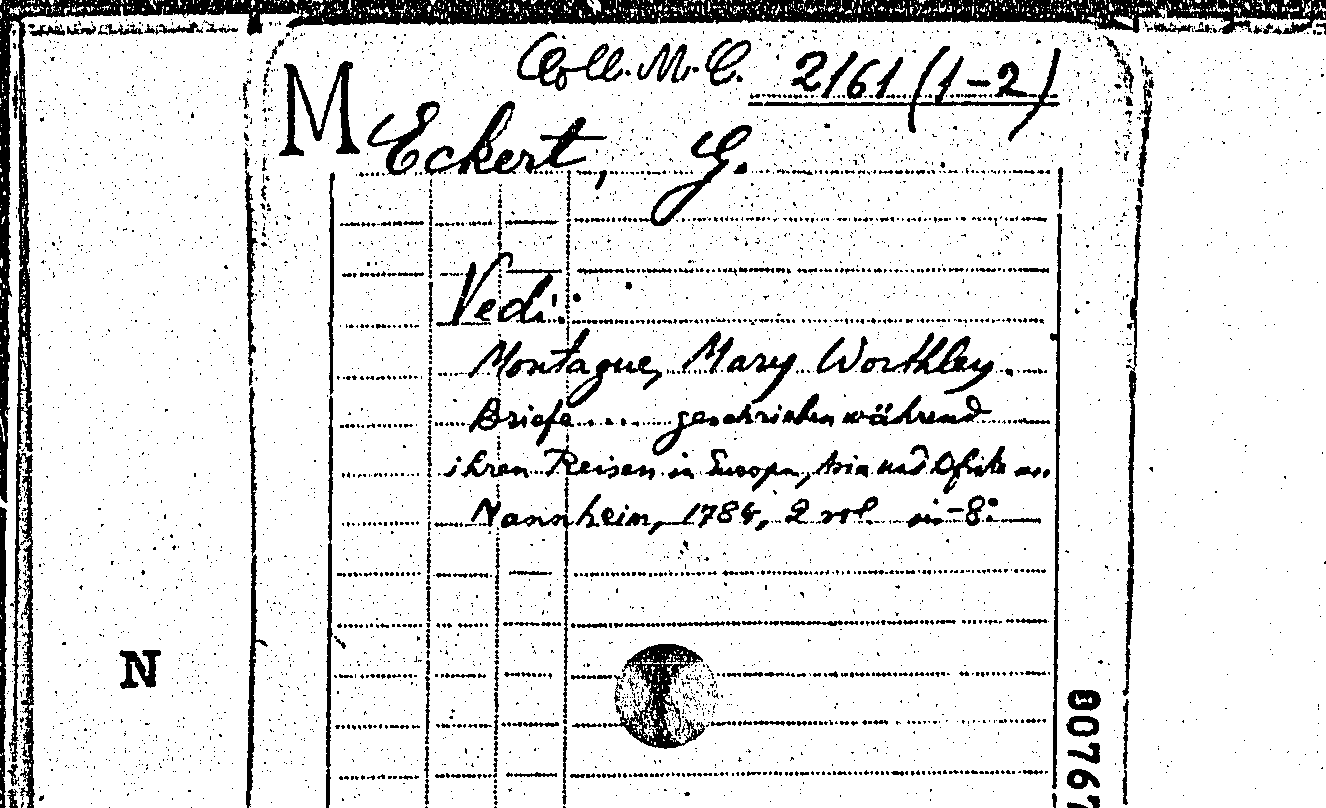 Coll. M. C. 2161 (1-2)
M Eckert, G.
Vedi:
Montague, Mary Worthley.
Briefe.... geschrieben während
ihren Reisen in Europa, Asia und
Mannheim, 1784, 2 vol. in-8:
N
00767